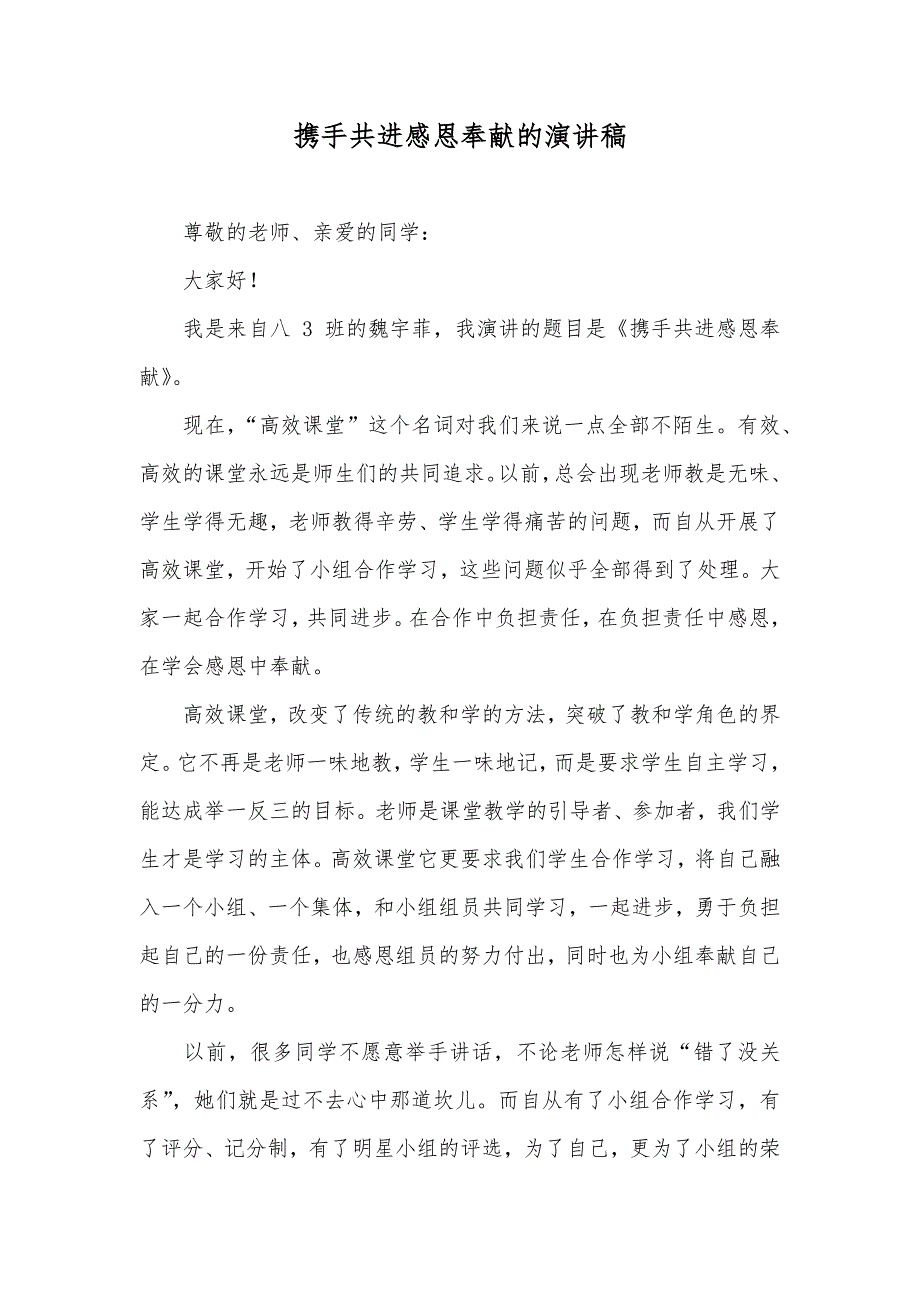 携手共进感恩奉献的演讲稿
尊敬的老师、亲爱的同学：
大家好！
我是来自八 3 班的魏宇菲，我演讲的题目是《携手共进感恩奉
献》。
现在，“高效课堂”这个名词对我们来说一点全部不陌生。有效、
高效的课堂永远是师生们的共同追求。以前，总会出现老师教是无味、
学生学得无趣，老师教得辛劳、学生学得痛苦的问题，而自从开展了
高效课堂，开始了小组合作学习，这些问题似乎全部得到了处理。大
家一起合作学习，共同进步。在合作中负担责任，在负担责任中感恩，
在学会感恩中奉献。
高效课堂，改变了传统的教和学的方法，突破了教和学角色的界
定。它不再是老师一味地教，学生一味地记，而是要求学生自主学习，
能达成举一反三的目标。老师是课堂教学的引导者、参加者，我们学
生才是学习的主体。高效课堂它更要求我们学生合作学习，将自己融
入一个小组、一个集体，和小组组员共同学习，一起进步，勇于负担
起自己的一份责任，也感恩组员的努力付出，同时也为小组奉献自己
的一分力。
以前，很多同学不愿意举手讲话，不论老师怎样说“错了没关
系”，她们就是过不去心中那道坎儿。而自从有了小组合作学习，有
了评分、记分制，有了明星小组的评选，为了自己，更为了小组的荣